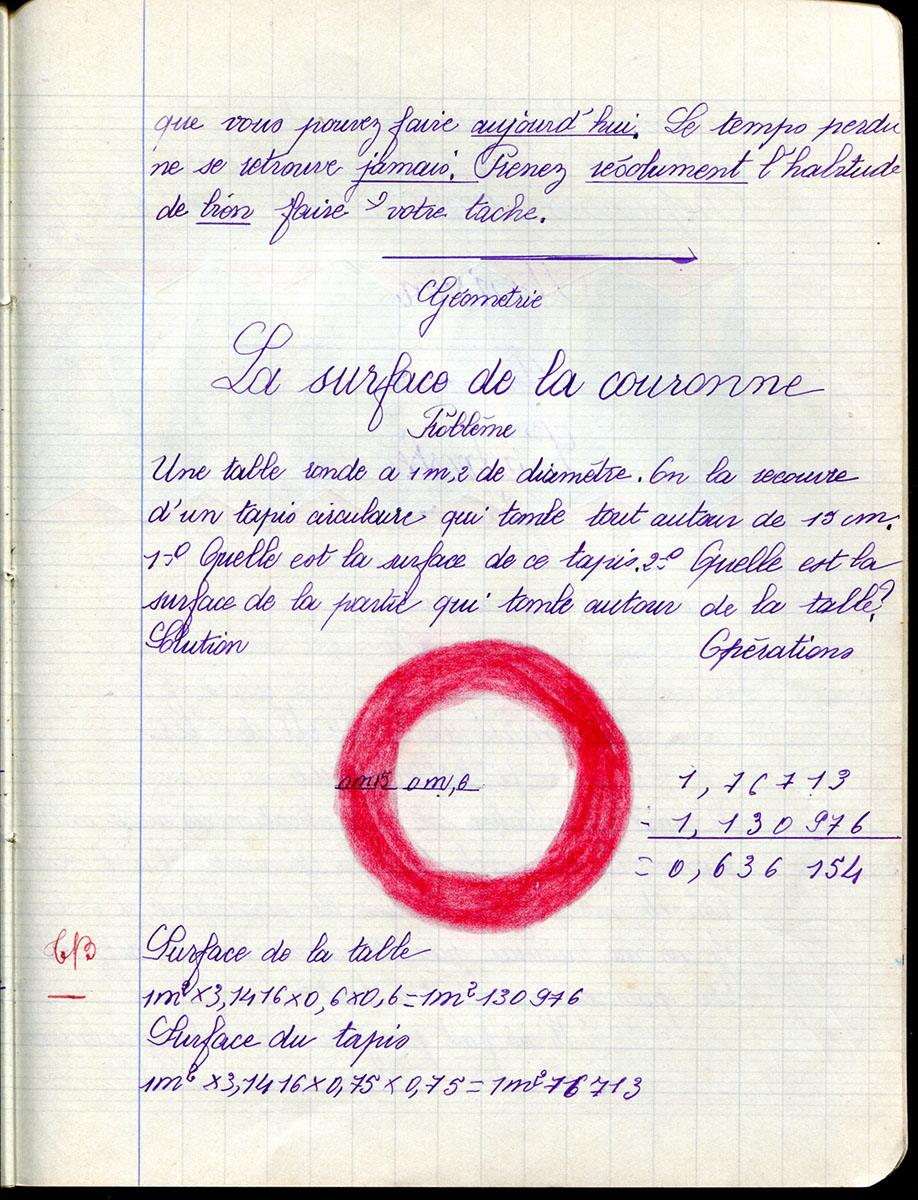 que vous pouvez faire aujourd'hui. Le temps perdu
ne se retrouve jamais. Prenez résolument l'habitude
de bien faire votre tache.
Géométrie
La surface de la couronne
Problème
Une table ronde a 1m,2 de diamètre. On la recouvre
d'un tapis circulaire qui tombe tout autour de 15 cm.
1º Quelle est la surface de ce tapis. 2º Quelle est la
surface de la partie qui tombe autour de la table?
Solution Opérations
0m15 0m,6
1,76713
- 1,130976
= 0,636 154
TB
Surface de la table
1m² × 3,1416 × 0,6 × 0,6 = 1m² 130976
Surface du tapis
1m² × 3,1416 × 0,75 × 0,75 = 1m² 76713